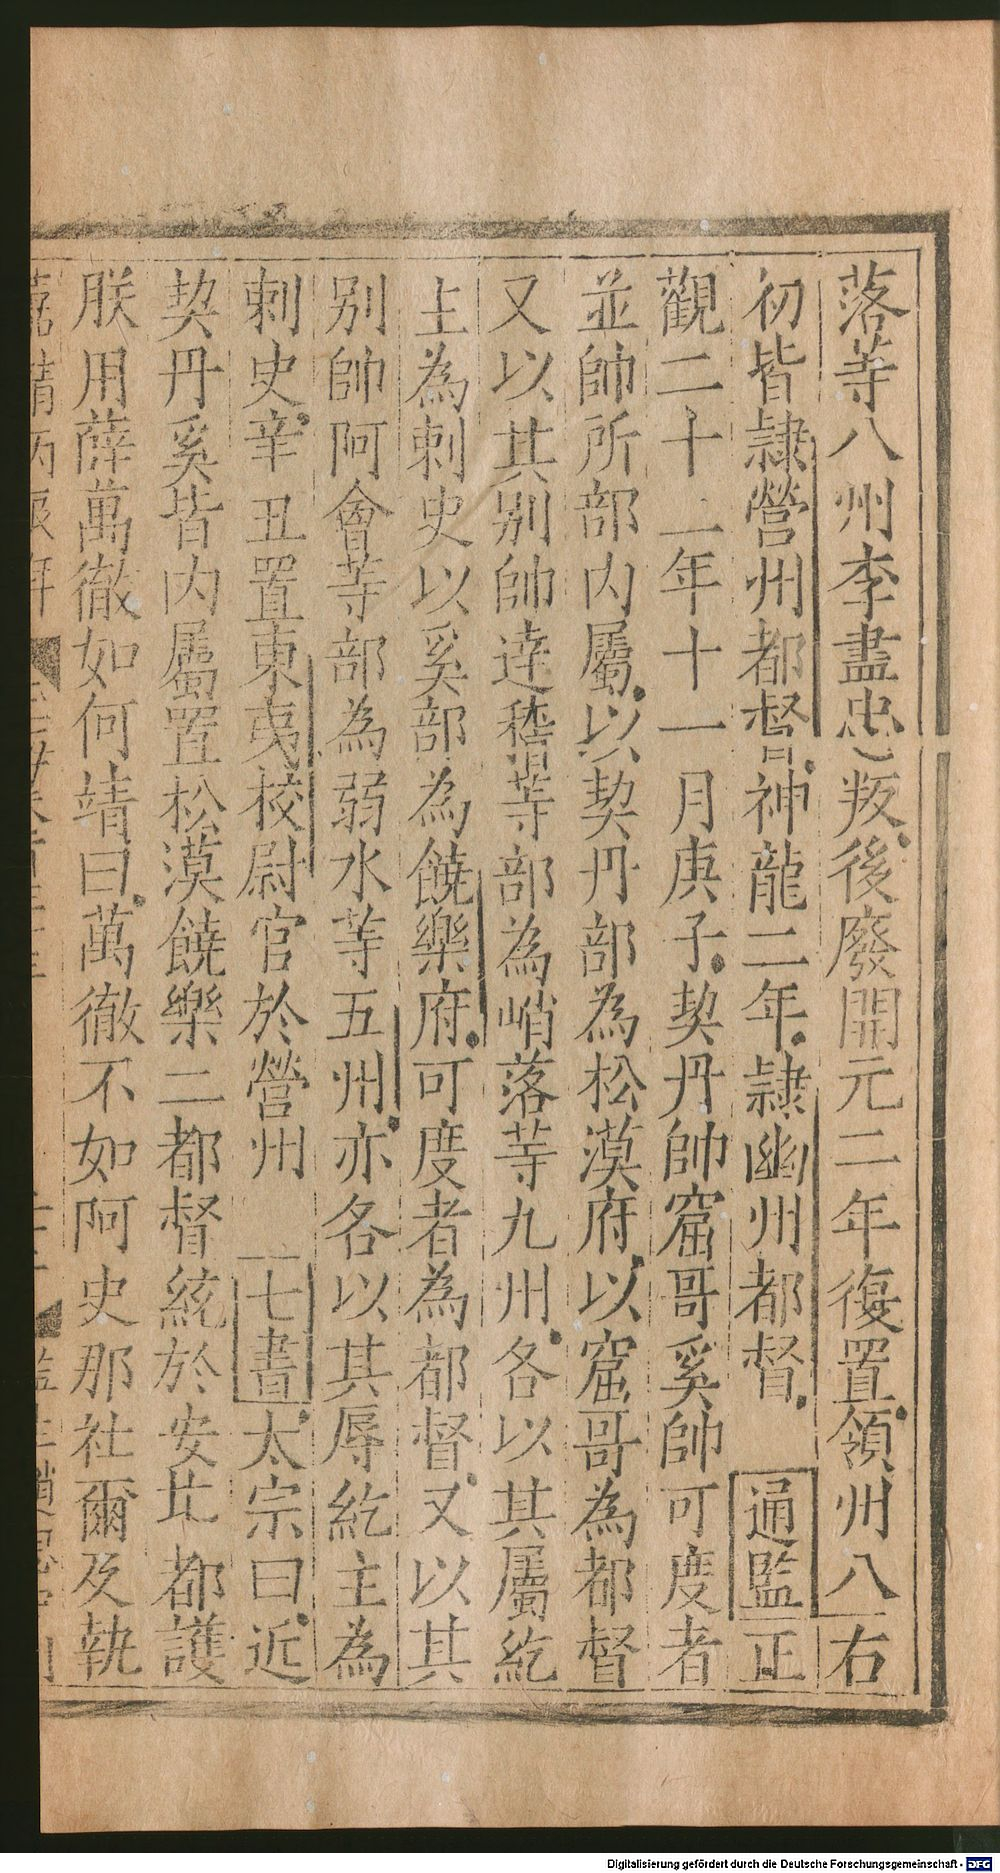 落等八州李盡忠叛後廢開元二年復置領州八右
初皆隷營州都督神龍二年隷幽州都督 通監正
觀二十二年十一月庚子契丹帥窟哥奚帥可度者
並帥所部内屬以契丹部為松漠府以窟哥為都督
又以其别帥逹稽等部為峭落等九州各以其屬紇
主為刺史以奚部為饒樂府可度者為都督又以其
别帥阿會等部為弱水等五州亦各以其辱紇主為
刺史辛丑置東夷校尉官於營州 七書太宗曰近
契丹奚皆内屬置松漠饒樂二都督統於安北都護
朕用薛萬徹如何靖曰萬徹不如阿史那社爾及執
Digitalisierung gefördert durch die Deutsche Forschungsgemeinschaft - DFG